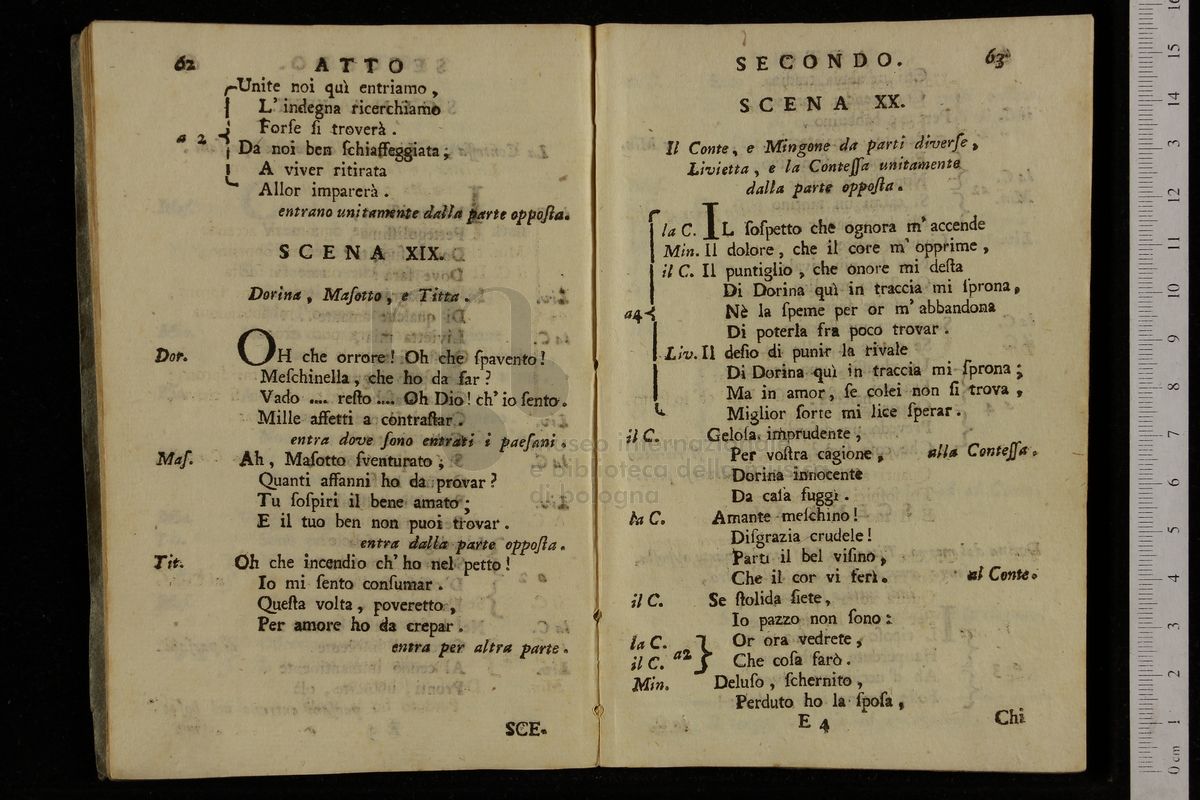 62 ATTO
Unite noi quì entriamo,
L'indegna ricerchiamo
Forſe ſi troverà.
a 2
Da noi ben ſchiaffeggiata;
A viver ritirata
Allor imparerà.
entrano unitamente dalla parte oppoſta.
SCENA XIX.
Dorina, Maſotto, e Titta.
Dor. OH che orrore! Oh che ſpavento!
Meſchinella, che ho da far?
Vado .... reſto .... Oh Dio! ch'io ſento.
Mille affetti a contraſtar.
entra dove ſono entrati i paeſani.
Maſ. Ah, Maſotto ſventurato;
Quanti affanni ho da provar?
Tu ſoſpiri il bene amato;
E il tuo ben non puoi trovar.
entra dalla parte oppoſta.
Tit. Oh che incendio ch'ho nel petto!
Io mi ſento conſumar.
Queſta volta, poveretto,
Per amore ho da crepar.
entra per altra parte.
SCE-
SECONDO. 63
SCENA XX.
Il Conte, e Mingone da parti diverſe,
Livietta, e la Conteſſa unitamente
dalla parte oppoſta.
la C. IL ſoſpetto che ognora m'accende
Min. Il dolore, che il core m'opprime,
il C. Il puntiglio, che onore mi deſta
Di Dorina quì in traccia mi ſprona,
a4 Nè la ſpeme per or m'abbandona
Di poterla fra poco trovar.
Liv. Il deſio di punir la rivale
Di Dorina quì in traccia mi ſprona;
Ma in amor, ſe colei non ſi trova,
Miglior ſorte mi lice ſperar.
il C. Geloſa, imprudente,
Per voſtra cagione, alla Conteſſa.
Dorina innocente
Da caſa fuggì.
la C. Amante meſchino!
Diſgrazia crudele!
Partì il bel viſino,
Che il cor vi ferì. al Conte.
il C. Se ſtolida ſiete,
Io pazzo non ſono:
la C. Or ora vedrete,
il C. a2 Che coſa farò.
Min. Deluſo, ſchernito,
Perduto ho la ſpoſa,
E 4 Chi
museo internazionale
e biblioteca della musica
di bologna